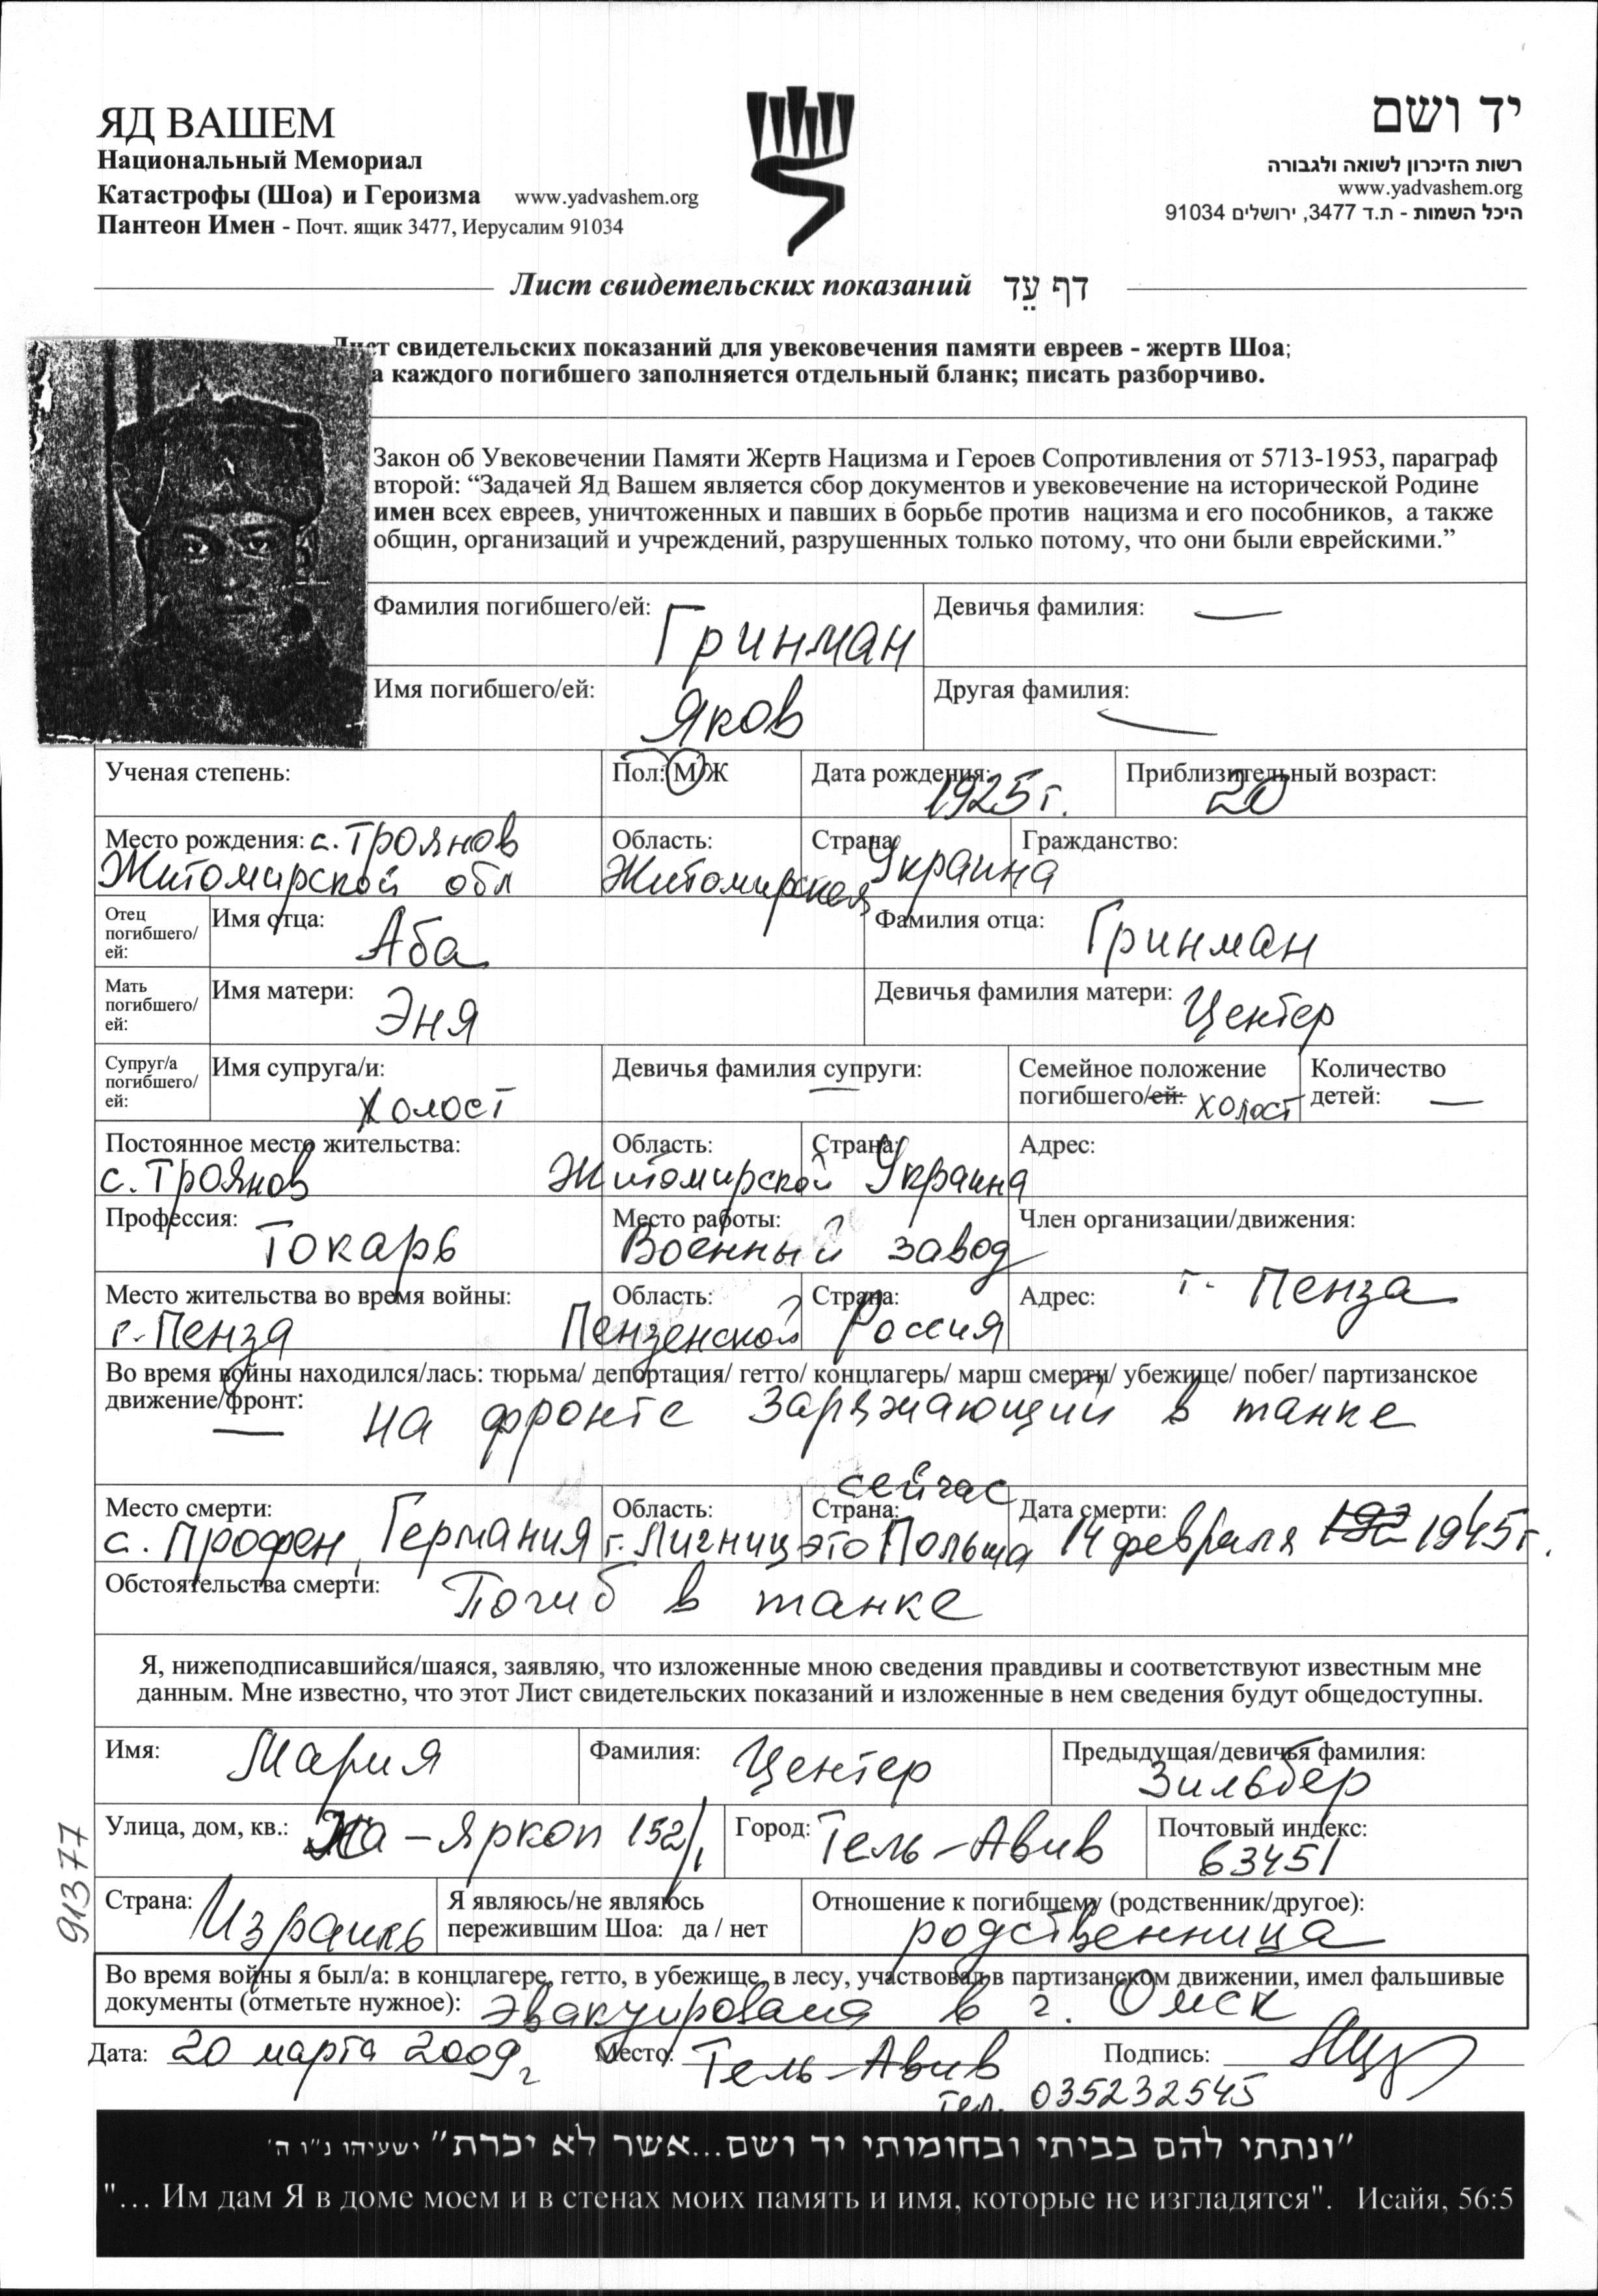 ЯД ВАШЕМ
Национальный Мемориал
Катастрофы (Шоа) и Героизма www.yadvashem.org
Пантеон Имен - Почт. ящик 3477, Иерусалим 91034
יד ושם
רשות הזיכרון לשואה ולגבורה
www.yadvashem.org
היכל השמות - ת.ד 3477, ירושלים 91034
Лист свидетельских показаний דף עֵד
Лист свидетельских показаний для увековечения памяти евреев - жертв Шоа;
а каждого погибшего заполняется отдельный бланк; писать разборчиво.
Закон об Увековечении Памяти Жертв Нацизма и Героев Сопротивления от 5713-1953, параграф
второй: “Задачей Яд Вашем является сбор документов и увековечение на исторической Родине
имен всех евреев, уничтоженных и павших в борьбе против нацизма и его пособников, а также
общин, организаций и учреждений, разрушенных только потому, что они были еврейскими.”
Фамилия погибшего/ей: Гринман Девичья фамилия: —
Имя погибшего/ей: Яков Другая фамилия: —
Ученая степень: Пол: М/Ж Дата рождения: 1925г. Приблизительный возраст: 20
Место рождения: с. Троянов Область: Страна: Гражданство:
Житомирской обл Житомирская Украина
Отец погибшего/ей: Имя отца: Аба Фамилия отца: Гринман
Мать погибшего/ей: Имя матери: Эня Девичья фамилия матери: Центер
Супруг/а погибшего/ей: Имя супруга/и: Холост Девичья фамилия супруги: — Семейное положение погибшего/ей: холост Количество детей: —
Постоянное место жительства: Область: Страна: Адрес:
с. Троянов Житомирской Украина
Профессия: Токарь Место работы: Военный завод Член организации/движения:
Место жительства во время войны: Область: Страна: Адрес: г. Пенза
г. Пенза Пензенской Россия
Во время войны находился/лась: тюрьма/ депортация/ гетто/ концлагерь/ марш смерти/ убежище/ побег/ партизанское
движение/фронт: — на фронте Заряжающий в танке
сейчас
Место смерти: Область: Страна: Дата смерти:
с. Профен, Германия г. Лигниц это Польша 14 февраля 192 1945г.
Обстоятельства смерти: Погиб в танке
Я, нижеподписавшийся/шаяся, заявляю, что изложенные мною сведения правдивы и соответствуют известным мне
данным. Мне известно, что этот Лист свидетельских показаний и изложенные в нем сведения будут общедоступны.
Имя: Мария Фамилия: Центер Предыдущая/девичья фамилия: Зильбер
Улица, дом, кв.: Ха-Яркон 152/1 Город: Тель-Авив Почтовый индекс: 63451
Страна: Израиль Я являюсь/не являюсь пережившим Шоа: да / нет Отношение к погибшему (родственник/другое): родственница
Во время войны я был/а: в концлагере, гетто, в убежище, в лесу, участвовал в партизанском движении, имел фальшивые
документы (отметьте нужное): эвакуирована в г. Омск
Дата: 20 марта 2009г Место: Тель-Авив Подпись:
тел. 035232545
91377
"ונתתי להם בביתי ובחומותי יד ושם...אשר לא יכרת" ישעיהו נ"ו ה'
"... Им дам Я в доме моем и в стенах моих память и имя, которые не изгладятся". Исайя, 56:5